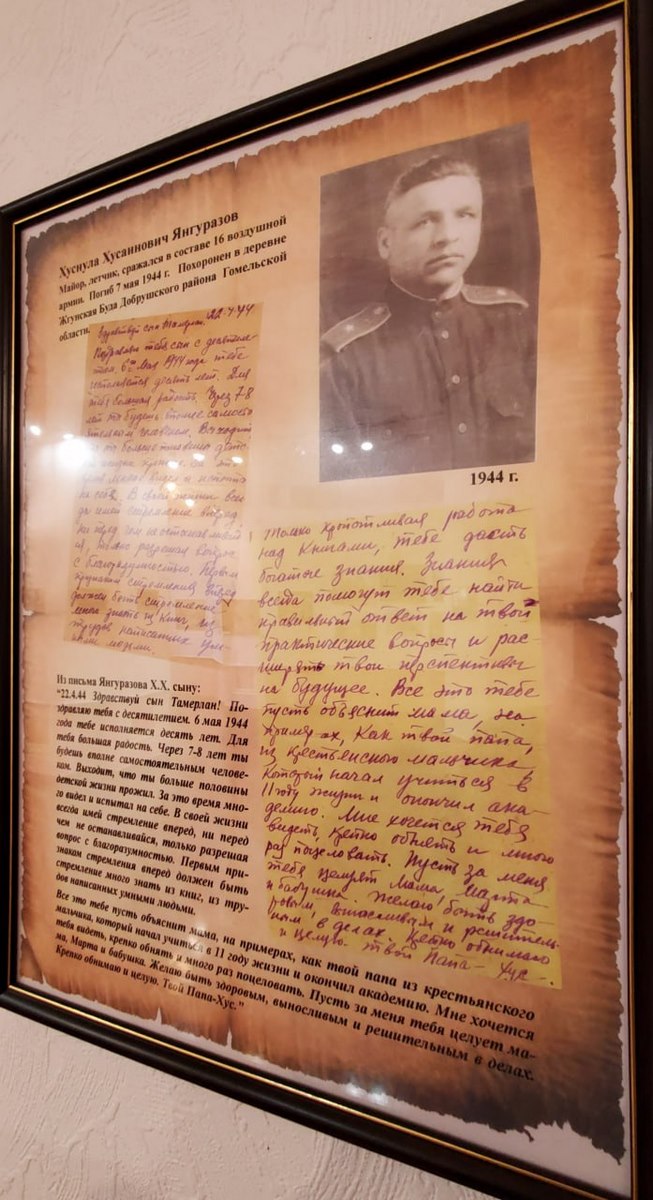 Хуснула Хусаинович Янгуразов
Майор, летчик, сражался в составе 16 воздушной
армии. Погиб 7 мая 1944 г. Похоронен в деревне
Жгунская Буда Добрушского района Гомельской
области.
1944 г.
Здравствуй сын Тамерлан. 22-4-44
Поздравляю тебя сын с десятиле-
тием. 6го мая 1944 года тебе
исполняется десять лет. Для
тебя большая радость. Через 7-8
лет ты будешь вполне самосто
ятельным человеком. Выходит
что ты больше половины детс-
кой жизни прожил. За это
время много видел и испытал
на себе. В своей жизни всег
да имей стремление вперед
ни перед чем не останавливай
ся, только разрешая вопрос
с благоразумностью. Первым
признаком стремления вперед
должен быть стремление
много знать из книг, из
трудов написанных ум-
ными людьми.
только кропотливая работа
над книгами, тебе дасть
богатые знания. Знания
всегда помогут тебе найти
правильный ответ на твои
практические вопросы и рас-
ширять твои перспективы
на будущее. Все это тебе
пусть объяснит мама, на
примерах, как твой папа,
из крестьянского мальчика,
который начал учиться в
11 году жизни и окончил ака-
демию. Мне хочется тебя
видеть, крепко обнять и много
раз поцеловать. Пусть за меня
тебя целует мама, Марта
и бабушка. Желаю быть здо-
ровым, выносливым и решитель-
ным в делах. Крепко обнимаю
и целую твой Папа-Хус.
Из письма Янгуразова Х.Х. сыну:
"22.4.44 Здравствуй сын Тамерлан! По-
здравляю тебя с десятилетием. 6 мая 1944
года тебе исполняется десять лет. Для
тебя большая радость. Через 7-8 лет ты
будешь вполне самостоятельным челове-
ком. Выходит, что ты больше половины
детской жизни прожил. За это время мно-
го видел и испытал на себе. В своей жизни
всегда имей стремление вперед, ни перед
чем не останавливайся, только разрешая
вопрос с благоразумностью. Первым при-
знакам стремления вперед должен быть
стремление много знать из книг, из тру-
дов написанных умными людьми.
Все это тебе пусть объяснит мама, на примерах, как твой папа из крестьянского
мальчика, который начал учиться в 11 году жизни и окончил академию. Мне хочется
тебя видеть, крепко обнять и много раз поцеловать. Пусть за меня тебя целует ма-
ма, Марта и бабушка. Желаю быть здоровым, выносливым и решительным в делах.
Крепко обнимаю и целую. Твой Папа-Хус."